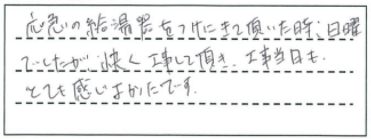 応急の給湯器をつけにきて頂いた時、日曜
でしたが、快く工事して頂き、工事当日も
とても感じよかたです。